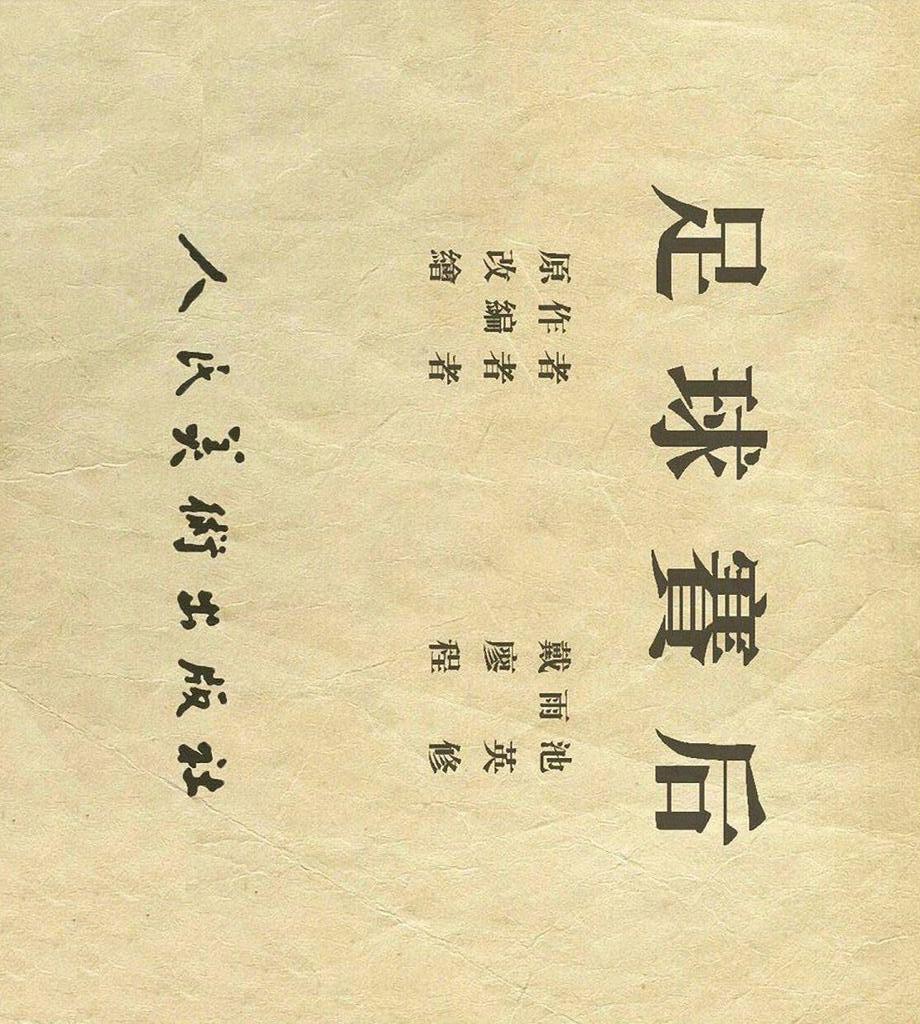 足球賽后
原作者 戴雨池
改編者 廖英
繪者 程修
人民美術出版社